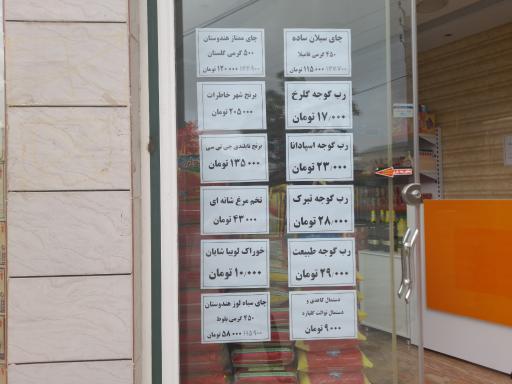 چای سیلان ساده
۴۵۰ گرمی فامیلا
۱۳۷/۷۰۰ ۱۱۵۰۰۰ تومان
رب گوجه گلرخ
۱۷/۰۰۰ تومان
رب گوجه اسپادانا
۲۳/۰۰۰ تومان
رب گوجه تبرک
۲۸/۰۰۰ تومان
رب گوجه طبیعت
۲۹/۰۰۰ تومان
دستمال کاغذی و
دستمال توالت گلپاره
۹۰۰۰ تومان
چای ممتاز هندوستان
۵۰۰ گرمی گلستان
۱۲۰۰۰۰ تومان
برنج شهر خاطرات
۲۰۵۰۰۰ تومان
برنج تایلندی جی تی سی
۱۳۵۰۰۰ تومان
تخم مرغ شانه ای
۴۳۰۰۰ تومان
خوراک لوبیا شایان
۱۰/۰۰۰ تومان
چای سیاه لوز هندوستان
۴۵۰ گرمی بلوط
۱۱۵۹۰۰ ۵۸۰۰۰ تومان